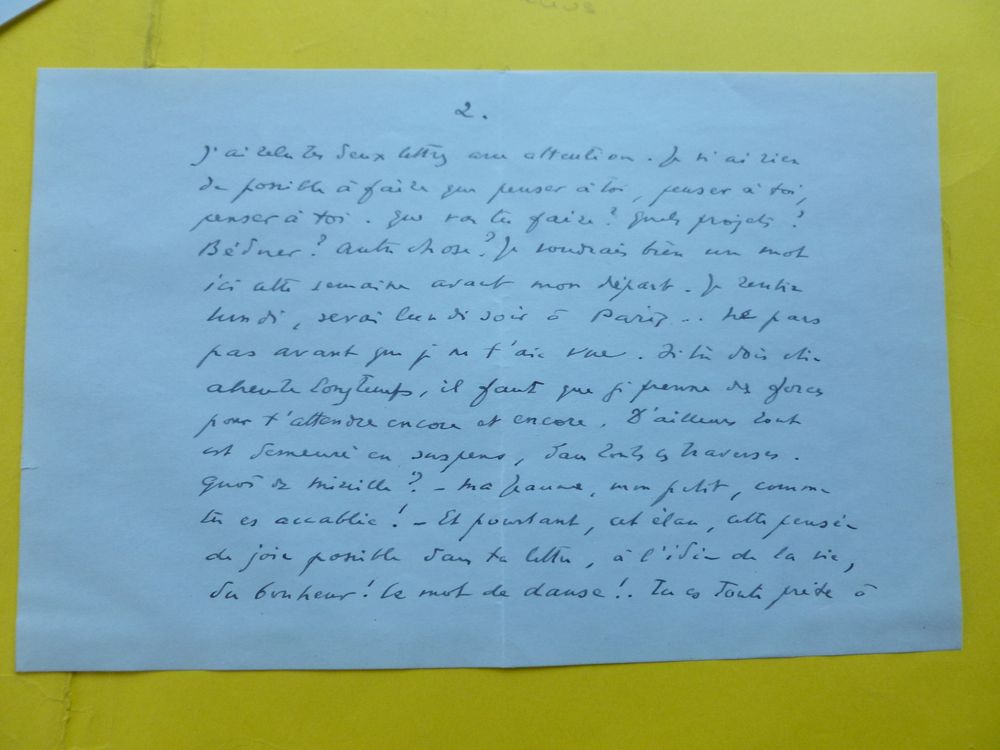 2.
J'ai relu tes deux lettres avec attention. Je n'ai rien
de possible à faire que penser à toi, penser à toi,
penser à toi. Que vas tu faire? Quels projets?
Autre chose? Je voudrais bien un mot
ici cette semaine avant mon départ. Je rentre
lundi, serai lundi soir à Paris... Ne pars
pas avant que je ne t'aie vue. Si tu dois être
absente longtemps, il faut que je prenne des forces
pour t'attendre encore et encore. D'ailleurs tout
est demeuré en suspens, dans toutes ces traverses.
Quoi de Mireille? - Ma Jeanne, mon petit, comme
tu es accablée! - Et pourtant, cet élan, cette pensée
de joie possible dans ta lettre, à l'idée de la vie,
du bonheur! Le mot de danse!. Tu es toute prête à